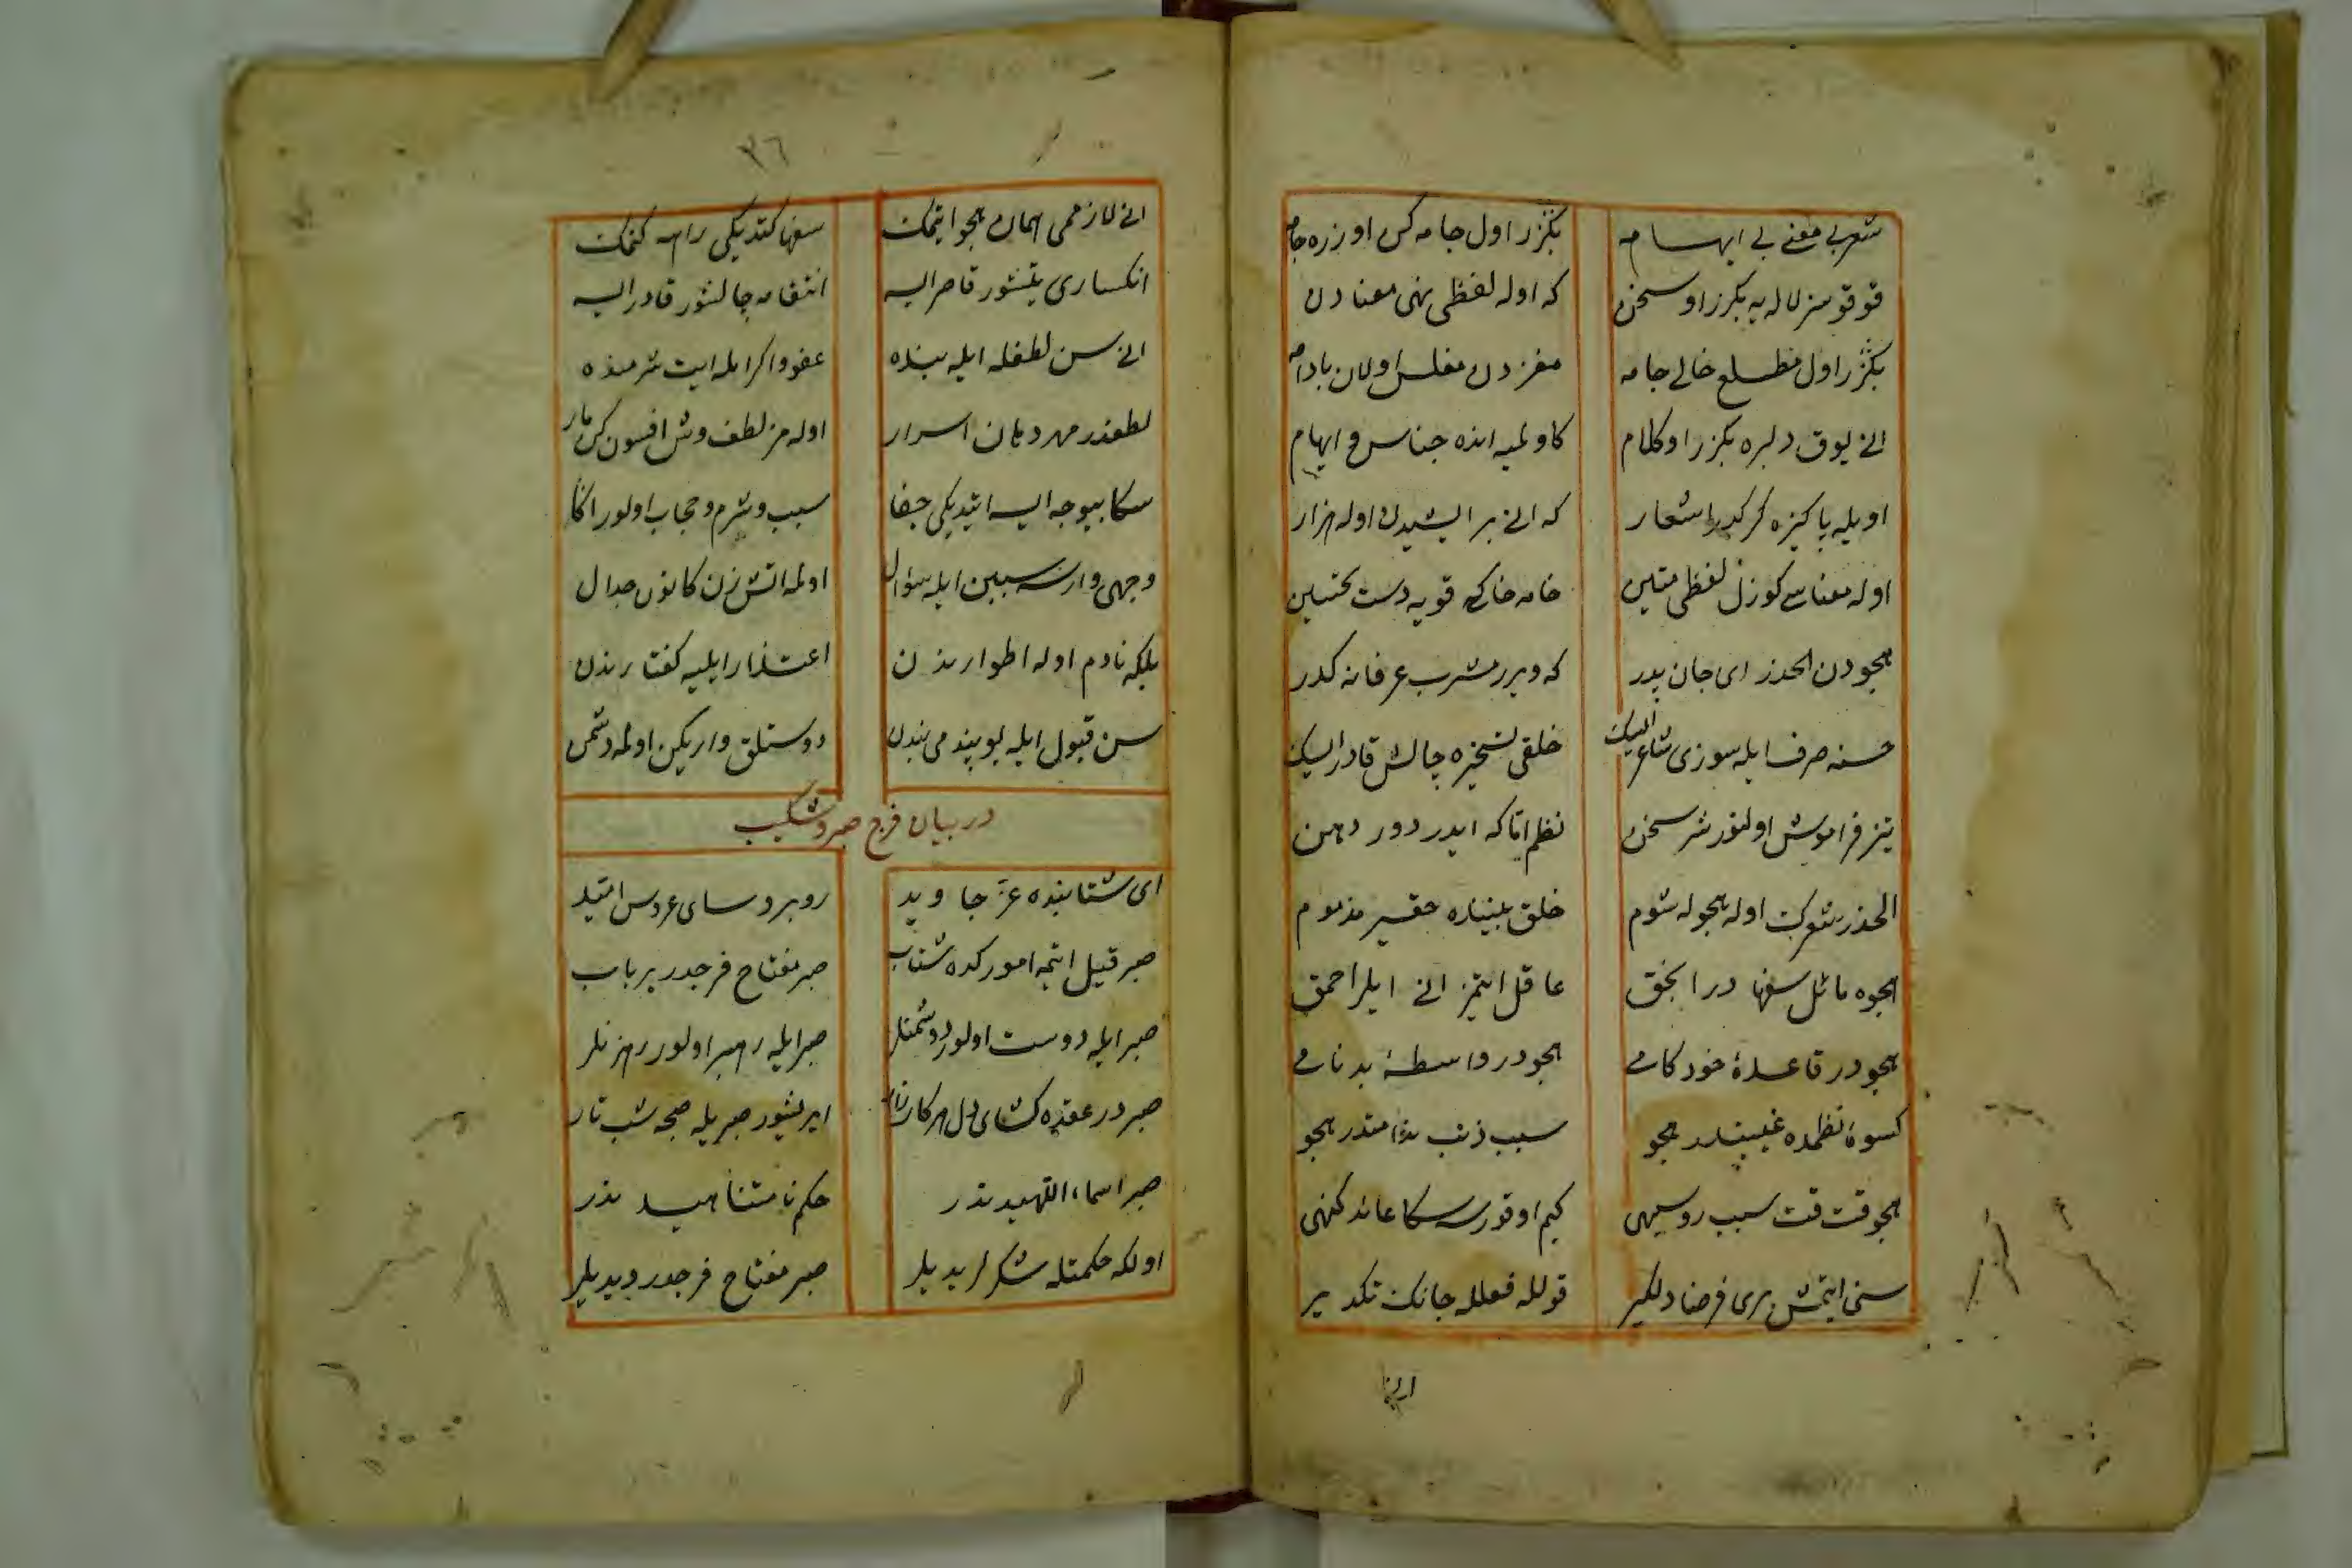 شعر بی معنی بی ایهامه
بکزر اول جامه کس اوزره جامه
قوقوسز لاله یه بکزر او سخن
که اوله لفظی نهی معنادن
بکزر اول مطلع خالی جامه
مغزدن مفلس اولان بادامه
انی یوق دلبره بکزر او کلام
کاولمیه انده جناس و ایهام
اویله پاکیزه کرکدر اشعار
که انی بر ایشیدن اوله هزار
اوله معناسی کوزل لفظی متین
خامه خاکه قویه دست تحسین
هجودن الحذر ای جان پدر
که ویرر مشرب عرفانه کدر
حسنه صرف ایله سوزی شاعر ایسک
خلقی تسخیره چالش قادر ایسک
تیز فراموش اولنور نثر سخن
نظم اتاکه ایدر دور دهن
الحذر شعرک اوله هجوله شوم
خلق بیننده حقیر مذموم
هجوه مائل سفها در انجق
عاقل ایتمز انی ایلر احمق
هجو در قاعدۀ خودکامی
هجو در واسطۀ بدنامی
کسوۀ نظمده غیبتدر هجو
سبب ذنب ندامتدر هجو
هجو قت قت سبب روسیهی
کیم اوقورسه سکا عائد کنهی
سنی ایتمش بری فرضا دلکیر
قولله فعلله جانک تکدیر
انی
٣٦
انی لازممی همان هجو ایتمک
سفها کتدیکی راهه کتمک
انکساری یتیشور قاصر ایسه
انتقامه چالشور قادر ایسه
انی سن لطفله ایله بنده
عفو و اکرامله ایت شرمنده
لطفدر مهر دهان اسرار
اولمز لطف وش افسونکر مار
سکا بیوجه ایسه ایتدیکی جفا
سبب و شرم و حجاب اولور اکا
وجهی وارسه سببین ایله سؤال
اولمه اتش زن کانون جدال
بلکه نادم اوله اطوارندن
اعتذار ایلیه کفتارندن
سن قبول ایله بو پندمی بندن
دوستلق واریکن اولمه دشمن
در بیان فرج صبر و شکیب
ای شتابنده عز جاوید
روبرو سای عروس امید
صبر قیل ایتمه امورکده شتاب
صبر مفتاح فرجدر بر باب
صبر ایله دوست اولور دشمنلر
صبر ایله رهبر اولور رهزنلر
صبر در عقده کشای دل هر کار
ایریشور صبریله صبحه شب تار
صبر اسماء الهیه دندر
حکم نامتناهیه دندر
اولکه حکمتله شکرلر یدیلر
صبر مفتاح فرجدر دیدیلر